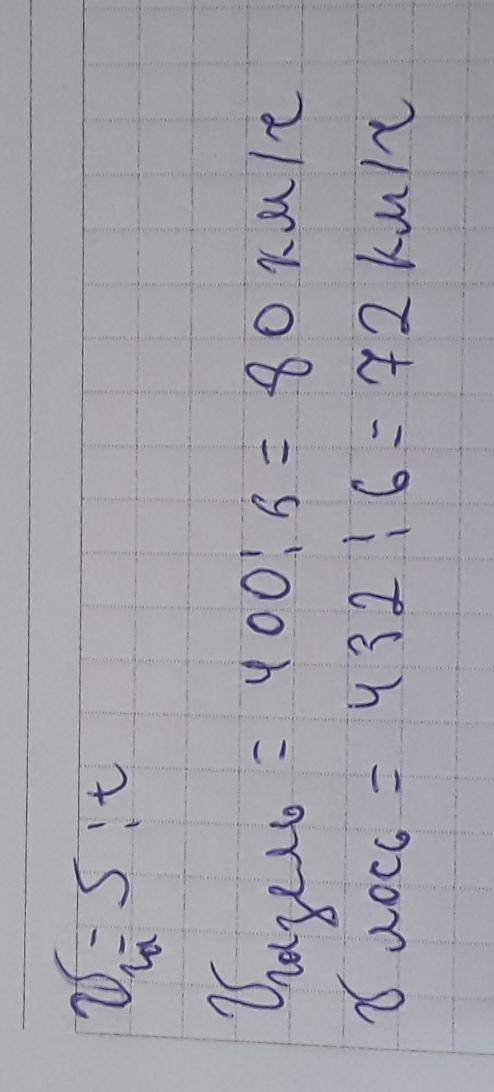 V = S : t
Vгазель = 400 : 5 = 80 км/ч
V лось = 432 : 6 = 72 км/ч